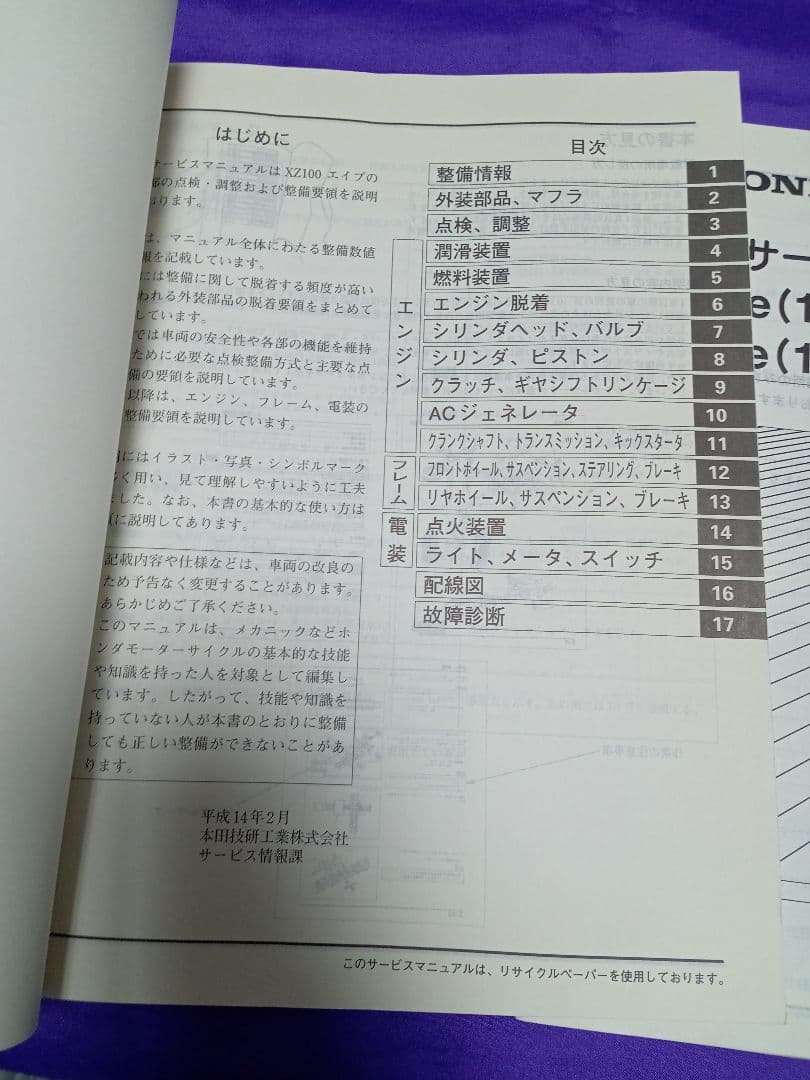 はじめに
サービスマニュアルは XZ100 エイプの
部の点検・調整および整備要領を説明
おります。
は、マニュアル全体にわたる整備数値
報を記載しています。
には整備に関して脱着する頻度が高い
われる外装部品の脱着要領をまとめて
しています。
では車両の安全性や各部の機能を維持
ために必要な点検整備方式と主要な点
備の要領を説明しています。
以降は、エンジン、フレーム、電装の
整備要領を説明しています。
にはイラスト・写真・シンボルマーク
く用い、見て理解しやすいように工夫
ました。なお、本書の基本的な使い方は
に説明してあります。
記載内容や仕様などは、車両の改良の
ため予告なく変更することがあります。
あらかじめご了承ください。
このマニュアルは、メカニックなどホ
ンダモーターサイクルの基本的な技能
や知識を持った人を対象として編集し
ています。したがって、技能や知識を
持っていない人が本書のとおりに整備
しても正しい整備ができないことがあ
ります。
平成14年2月
本田技研工業株式会社
サービス情報課
目次
整備情報 1
外装部品、マフラ 2
点検、調整 3
エンジン
潤滑装置 4
燃料装置 5
エンジン脱着 6
シリンダヘッド、バルブ 7
シリンダ、ピストン 8
クラッチ、ギヤシフトリンケージ 9
ACジェネレータ 10
クランクシャフト、トランスミッション、キックスタータ 11
フレーム
フロントホイール、サスペンション、ステアリング、ブレーキ 12
リヤホイール、サスペンション、ブレーキ 13
電装
点火装置 14
ライト、メータ、スイッチ 15
配線図 16
故障診断 17
このサービスマニュアルは、リサイクルペーパーを使用しております。
ON
サー
e(1
e(1